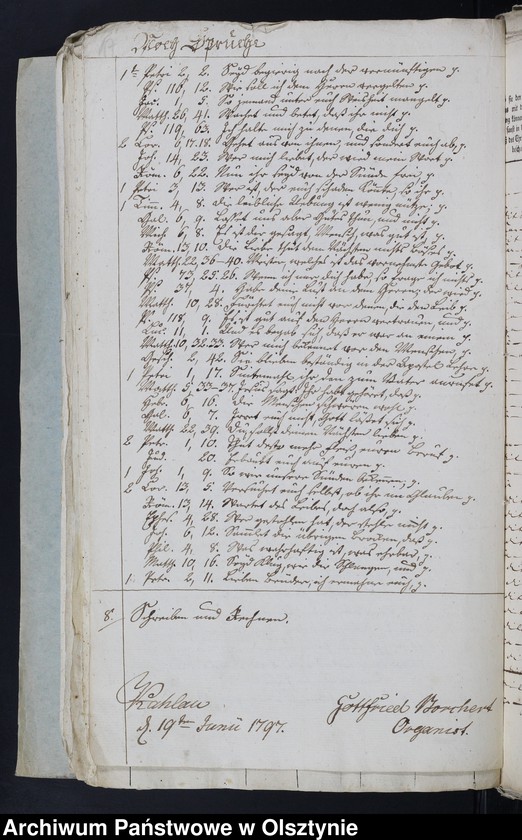 17
Noch Sprüche
1t Petri 2, 2. Seyd begierig nach der vernünftigen p.
Ps. 116, 12. Wie soll ich dem Herrn vergelten p.
Jac. 1, 5. So jemand unter euch Weisheit mangelt p.
Matth. 26, 41. Wachet und betet, daß ihr nicht p.
Ps. 119, 63. Ich halte mich zu denen, die dich p.
2 Cor. 6, 17. 18. Gehet aus von ihnen, und sondert euch ab, p.
Joh. 14, 23. Wer mich liebet, der wird mein Wort p.
Röm. 6, 22. Nun ihr seyd von der Sünde frei p.
1 Petri 3, 13. Wer ist, der euch schaden könte, so ihr p.
1 Tim. 4, 8. die leibliche Uebung ist wenig nütze, p.
Gal. 6, 9. Lasset uns aber Gutes thun, und nicht p.
Mich. 6, 8. Es ist dir gesagt, Mensch, was gut ist p.
Röm. 13, 10. Die Liebe thut dem Nächsten nichts Böses p.
Matth. 22, 36-40. Meister welches ist das vornehmste Gebot p.
Ps. 73, 25. 26. Wenn ich nur dich habe so frage ich nicht p.
Ps. 37, 4. Habe deine Lust an dem Herrn, der p.
Matth. 10, 28. Fürchtet euch nicht vor denen, die den Leib p.
Ps. 118, 9. Es ist gut auf den Herrn vertrauen, und p.
Luc. 11, 1. Und es begab sich, daß er war an einem p.
Matth. 10, 32. 33. Wer mich bekennet vor den Menschen, p.
Gesch. 2, 42. Sie blieben beständig in der Apostel Lehre p.
1 Petri 1, 17. Sintemahl ihr den zum Vater anrufet p.
Matth. 5, 33-37. Ihr habt gehöret, daß p.
Hebr. 6, 16. Die Menschen schwören wohl p.
Gal. 6, 7. Irret euch nicht, Gott läßet sich p.
Matth. 22, 39. Du sollst deinen Nächsten lieben p.
2 Petr. 1, 10. Thut desto mehr Fleiß, euren Beruf p.
Jud. 20. Erbauet euch auf euren p.
1 Joh. 1, 9. So wir unsere Sünden bekennen, p.
2 Cor. 13, 5. Versuchet euch selbst, ob ihr im Glauben p.
Röm. 13, 14. Wartet des Leibes, doch also, p.
Ephes. 4, 28. Wer gestohlen hat, der stehle nicht p.
Joh. 6, 12. Samlet die übrigen Brocken, daß p.
Phil. 4, 8. Was wahrhaftig ist, was ehrbar, p.
Matth. 10, 16. Seyd klug, wie die Schlangen, und p.
1 Petr. 2, 11. Lieben Brüder, ich ermahne euch, p.
8. Schreiben und Rechnen.
Kahlau Gottfried Borchert
d. 19ten Junii 1797. Organist.
Archiwum Państwowe w Olsztynie